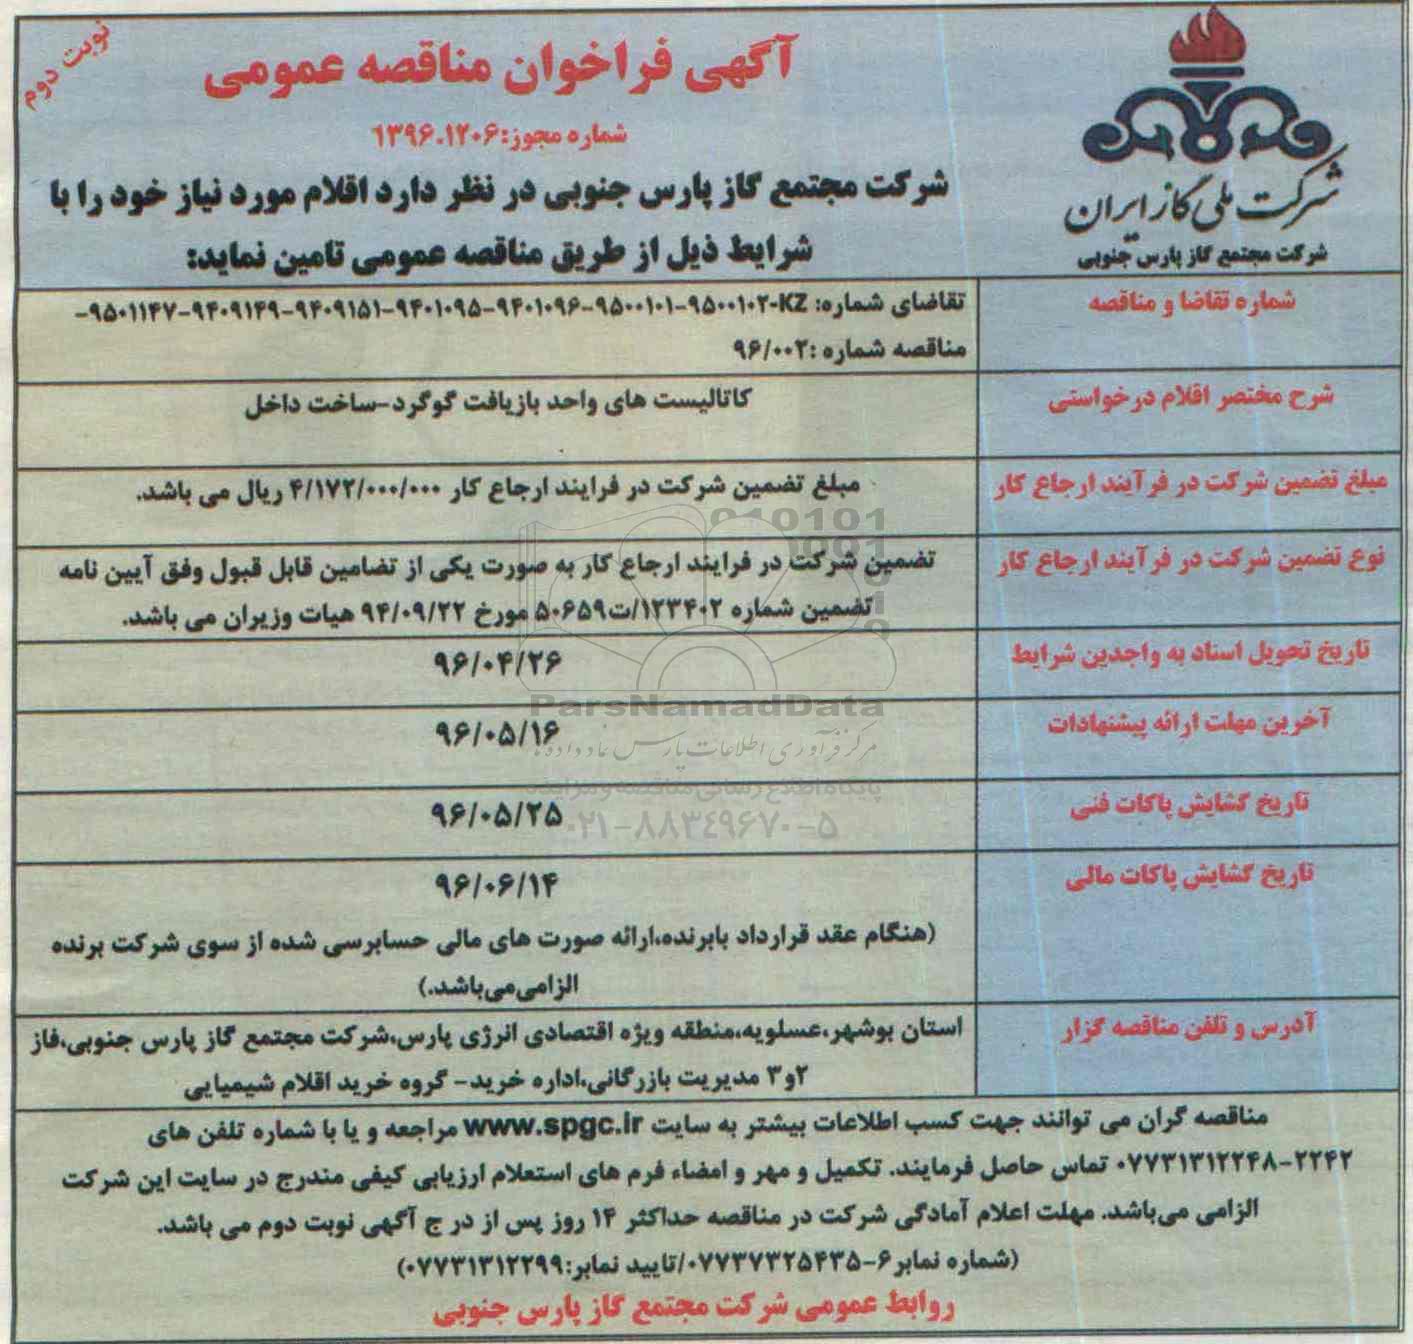 نوبت دوم
آگهی فراخوان مناقصه عمومی
شماره مجوز:۱۳۹۶.۱۲۰۶
شرکت مجتمع گاز پارس جنوبی در نظر دارد اقلام مورد نیاز خود را با
شرایط ذیل از طریق مناقصه عمومی تامین نماید:
شرکت ملی گاز ایران
شرکت مجتمع گاز پارس جنوبی
شماره تقاضا و مناقصه
تقاضای شماره: KZ-۹۵۰۰۱۰۲-۹۵۰۰۱۰۱-۹۴۰۱۰۹۶-۹۴۰۱۰۹۵-۹۴۰۹۱۵۱-۹۴۰۹۱۴۹-۹۵۰۱۱۴۷-
مناقصه شماره :۹۶/۰۰۲
شرح مختصر اقلام درخواستی
کاتالیست های واحد بازیافت گوگرد-ساخت داخل
مبلغ تضمین شرکت در فرآیند ارجاع کار
مبلغ تضمین شرکت در فرایند ارجاع کار ۴/۱۷۲/۰۰۰/۰۰۰ ریال می باشد.
نوع تضمین شرکت در فرآیند ارجاع کار
تضمین شرکت در فرایند ارجاع کار به صورت یکی از تضامین قابل قبول وفق آیین نامه
تضمین شماره ۱۲۳۴۰۲/ت۵۰۶۵۹ مورخ ۹۴/۰۹/۲۲ هیات وزیران می باشد.
تاریخ تحویل اسناد به واجدین شرایط
۹۶/۰۴/۲۶
آخرین مهلت ارائه پیشنهادات
۹۶/۰۵/۱۶
تاریخ گشایش پاکات فنی
۹۶/۰۵/۲۵
تاریخ گشایش پاکات مالی
۹۶/۰۶/۱۴
(هنگام عقد قرارداد بابرنده،ارائه صورت های مالی حسابرسی شده از سوی شرکت برنده
الزامی‌می‌باشد.)
آدرس و تلفن مناقصه گزار
استان بوشهر،عسلویه،منطقه ویژه اقتصادی انرژی پارس،شرکت مجتمع گاز پارس جنوبی،فاز
۲و۳ مدیریت بازرگانی،اداره خرید- گروه خرید اقلام شیمیایی
مناقصه گران می توانند جهت کسب اطلاعات بیشتر به سایت www.spgc.ir مراجعه و یا با شماره تلفن های
۰۷۷۳۱۳۱۲۲۴۸-۲۲۴۲ تماس حاصل فرمایند. تکمیل و مهر و امضاء فرم های استعلام ارزیابی کیفی مندرج در سایت این شرکت
الزامی می‌باشد. مهلت اعلام آمادگی شرکت در مناقصه حداکثر ۱۴ روز پس از درج آگهی نوبت دوم می باشد.
(شماره نمابر۶-۰۷۷۳۷۳۲۵۴۳۵/تایید نمابر:۰۷۷۳۱۳۱۲۲۹۹)
روابط عمومی شرکت مجتمع گاز پارس جنوبی
ParsNamadData
مرکز فرآوری اطلاعات پارس نماد داده ها
پایگاه اطلاع رسانی مناقصه و مزایده
۰۲۱-۸۸۳۴۹۶۷۰-۵